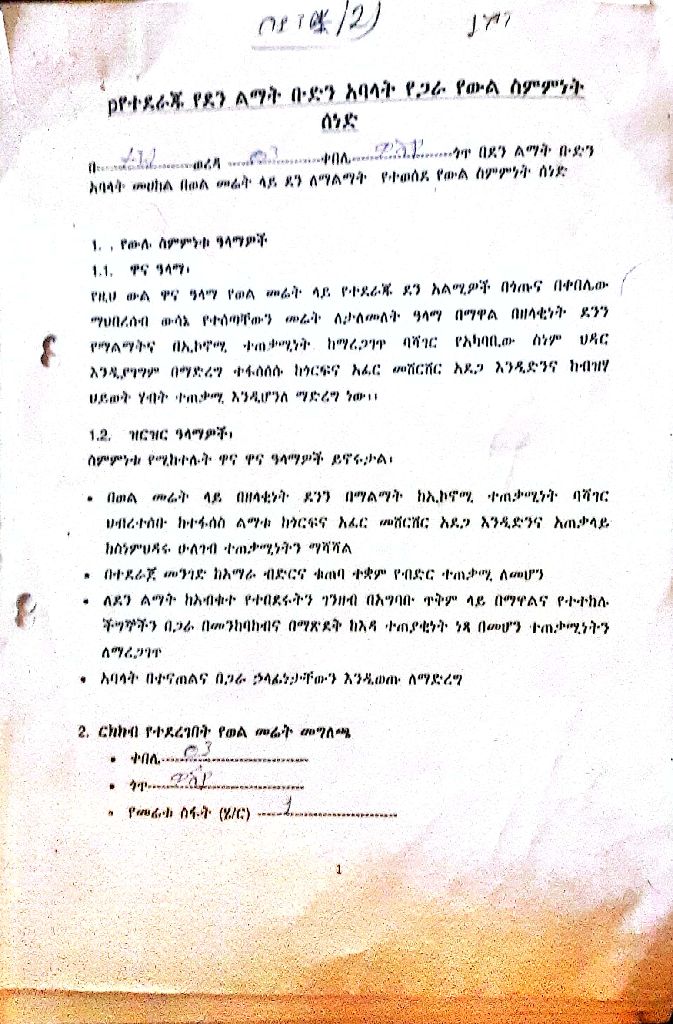 pየተደራጁ የደን ልማት ቡድን አባላት የጋራ የውል ስምምነት
ሰነድ
በ............ወረዳ ............03............ቀበሌ............ጎጥ በደን ልማት ቡድን
አባላት መሀከል በወል መሬት ላይ ደን ለማልማት የተወሰደ የውል ስምምነት ሰነድ
1. . የውሉ ስምምነቱ ዓላማዎች
1.1. ዋና ዓላማ፡
የዚህ ውል ዋና ዓላማ የወል መሬት ላይ የተደራጁ ደን አልሚዎች በጎጡና በቀበሌው
ማህበረሰብ ውሳኔ የተሰጣቸውን መሬት ለታለመለት ዓላማ በማዋል በዘላቂነት ደንን
የማልማትና በኢኮኖሚ ተጠቃሚነት ከማረጋገጥ ባሻገር የአካባቢው ስነም ህዳር
እንዲያገግም በማድረግ ተፋሰሰሱ ከጎርፍና አፈር መሸርሸር አደጋ እንዲድንና ከብዝሃ
ህይወት ሃብት ተጠቃሚ እንዲሆንለ ማድረግ ነው፡፡
1.2. ዝርዝር ዓላማዎች፡
ስምምነቱ የሚከተሉት ዋና ዋና ዓላማዎች ይኖሩታል፡
• በወል መሬት ላይ በዘላቂነት ደንን በማልማት ከኢኮኖሚ ተጠቃሚነት ባሻገር
ህብረተሰቡ ከተፋሰስ ልማቱ ከጎርፍና አፈር መሸርሸር አደጋ እንዲድንና አጠቃላይ
ከስነምህዳሩ ሁለገብ ተጠቃሚነትን ማሻሻል
• በተደራጀ መንገድ ከአማራ ብድርና ቁጠባ ተቋም የብድር ተጠቃሚ ለመሆን
• ለደን ልማት ከአብቁተ የተበደሩትን ገንዘብ በአግባቡ ጥቅም ላይ በማዋልና የተተከሉ
ችግኞችን በጋራ በመንከባከብና በማጽደቅ ከእዳ ተጠያቂነት ነጻ በመሆን ተጠቃሚነትን
ለማረጋገጥ
• አባላት በተናጠልና በጋራ ኃላፊነታቸውን እንዲወጡ ለማድረግ
2. ርክክብ የተደረገበት የወል መሬት መግለጫ
• ቀበሌ............03............
• ጎጥ............
• የመሬቱ ስፋት (ሄ/ር) ............
1